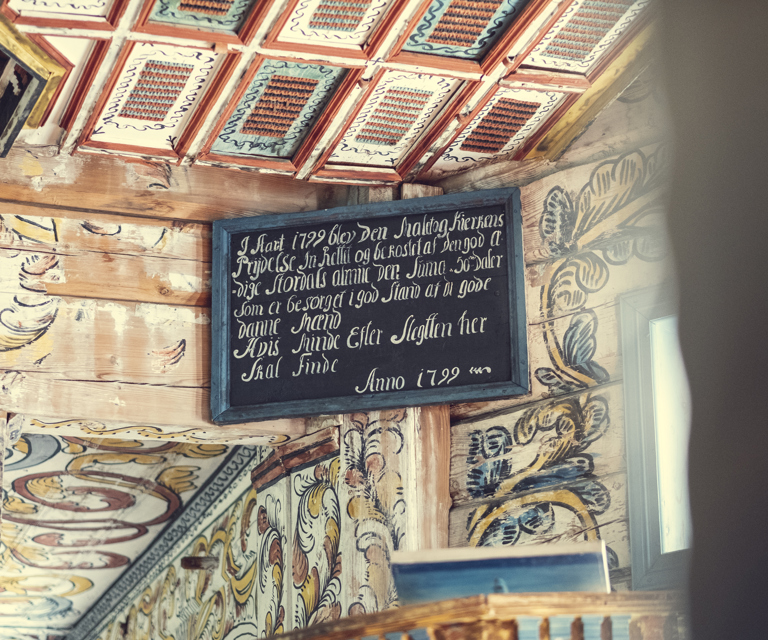 I Aaret 1799 blev Den Maling Kierkens
Prydelse In Rettet og bekostet af den god a
-dige Stordals almue den Suma .50 Daler
som er besørget i god Stand af 14 gode
danne Mænd
Hvis Minde Efter Slegtten her
Skal Finde
Anno 1799